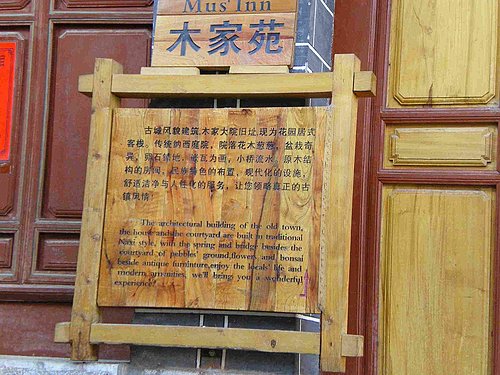 Mus' Inn
木家苑
古城风貌建筑,木家大院旧址,现为花园居式
客栈。传统纳西庭院,院落花木葱葱,盆栽奇
异,卵石铺地,缘瓦为画,小桥流水。原木结
构的房间,民族特色的布置、现代化的设施,
舒适洁净与人性化的服务,让您领略真正的古
镇风情!
The architectural building of the old town,
the house and the courtyard are built in traditional
Naxi style, with the spring and bridge besides the
courtyard of pebbles' ground,flowers and bonsai
beside antique furninture,enjoy the locals' life and
modern amenities, we'll brings you a wonderful
experience!